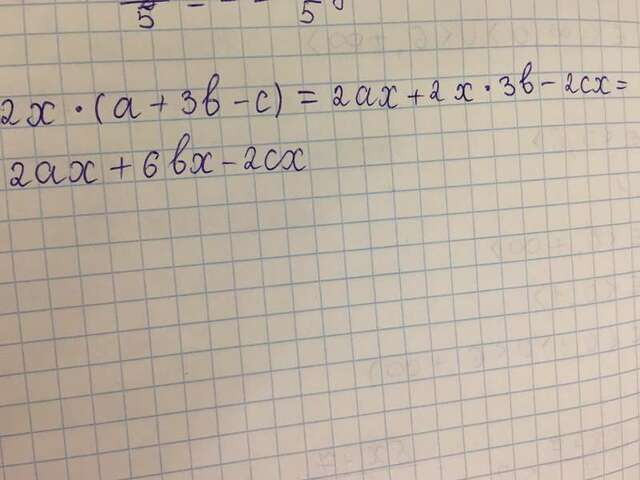 5 5
2x · (a + 3b - c) = 2ax + 2x · 3b - 2cx =
2ax + 6bx - 2cx